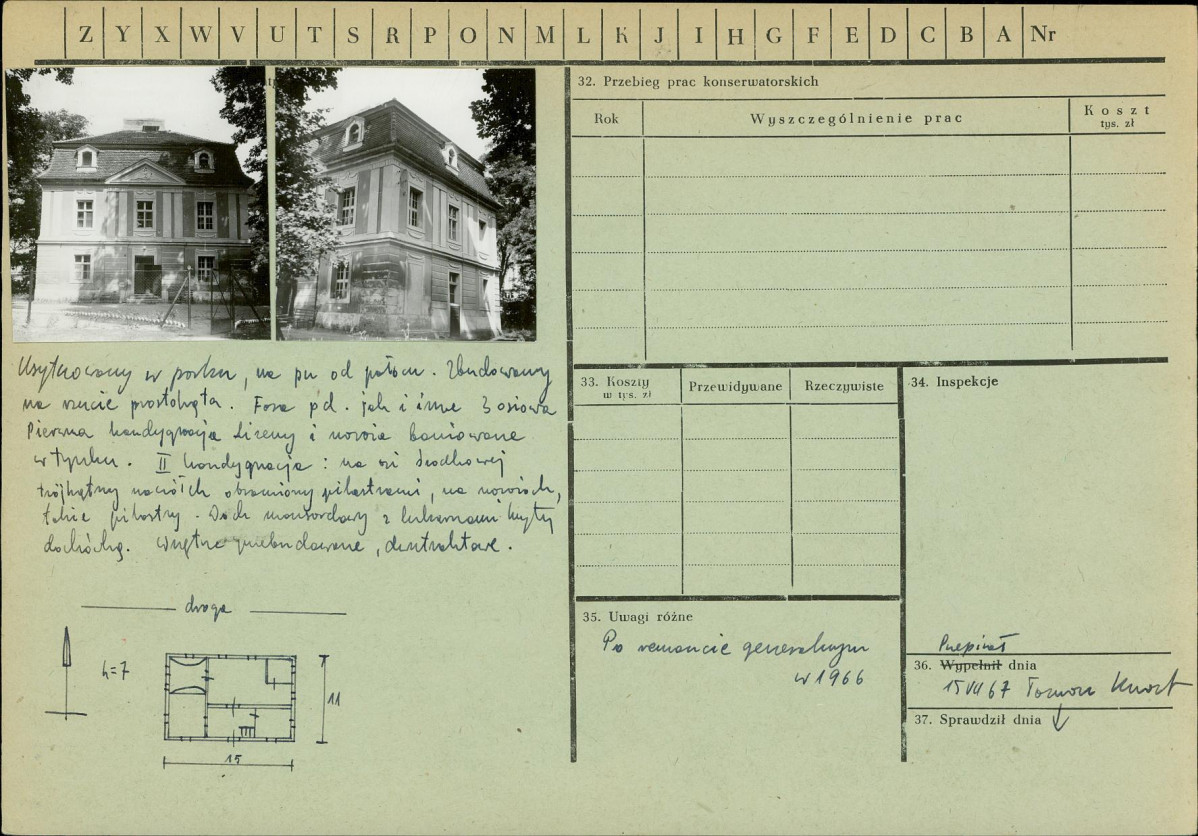 Z Y X W V U T S R P O N M L K J I H G F E D C B A Nr
32. Przebieg prac konserwatorskich
Rok
Wyszczególnienie prac
Koszt
tys. zł
Usytuowany w parku, na pn od pałacu. Zbudowany
na rzucie prostokąta. Fasa pd. jak i inne 3 osiowa
Pierwsza kondygnacja lizeny i naroża boniowane
w tynku. II kondygnacja: na osi środkowej
trójkątny naczółek obramiony pilastrami, na narożach,
takie pilastry. Dach mansardowy z lukarnami kryty
dachówką. Wnętrze przebudowane, dwutraktowe.
33. Koszty
w tys. zł
Przewidywane
Rzeczywiste
34. Inspekcje
droga
h=7
11
15
35. Uwagi różne
Po remoncie generalnym
w 1966
Przepisał
36. Wypełnił dnia
15 VII 67
37. Sprawdził dnia